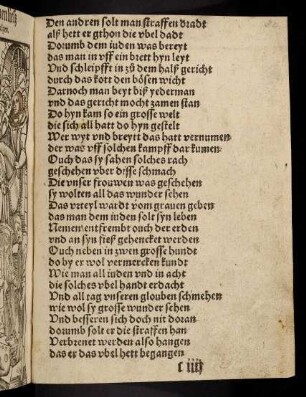 Den andren solt man straffen bradt
alß hett er gthon die vbel dadt
Dorumb dem iuden was bereyt
das man in vff ein brett hyn leyt
Vnd schleipfft in zů dem halß gericht
durch das kott den bösen wicht
Darnoch man beyt biß yederman
vnd das gericht mocht zamen stan
Do hyn kam so ein grosse welt
die sich all hatt do hyn gestelt
Wer wyt vnd breytt das hatt vernumen
der was vff solchen kampff dar kumen
Ouch das sy sahen solches rach
geschehen vber disse schmach
Die vnser frouwen was geschehen
sy wolten all das wunder sehen
Das vrteyl wardt vom grauen geben
das man dem iuden solt syn leben
Nemen entfrembt ouch der erden
vnd an syn fieß gehencket werden
Ouch neben in zwen grosse hundt
do by er wol vermercken kundt
Wie man all iuden vnd in acht
die solches vbel handt erdacht
Vnd all tag vnseren glouben schmehen
wie wol sy grosse wunder sehen
Vnd besseren sich doch nit doran
dorumb solt er die straffen han
Verbrenet werden also hangen
das er das vbel hett begangen
c iiij